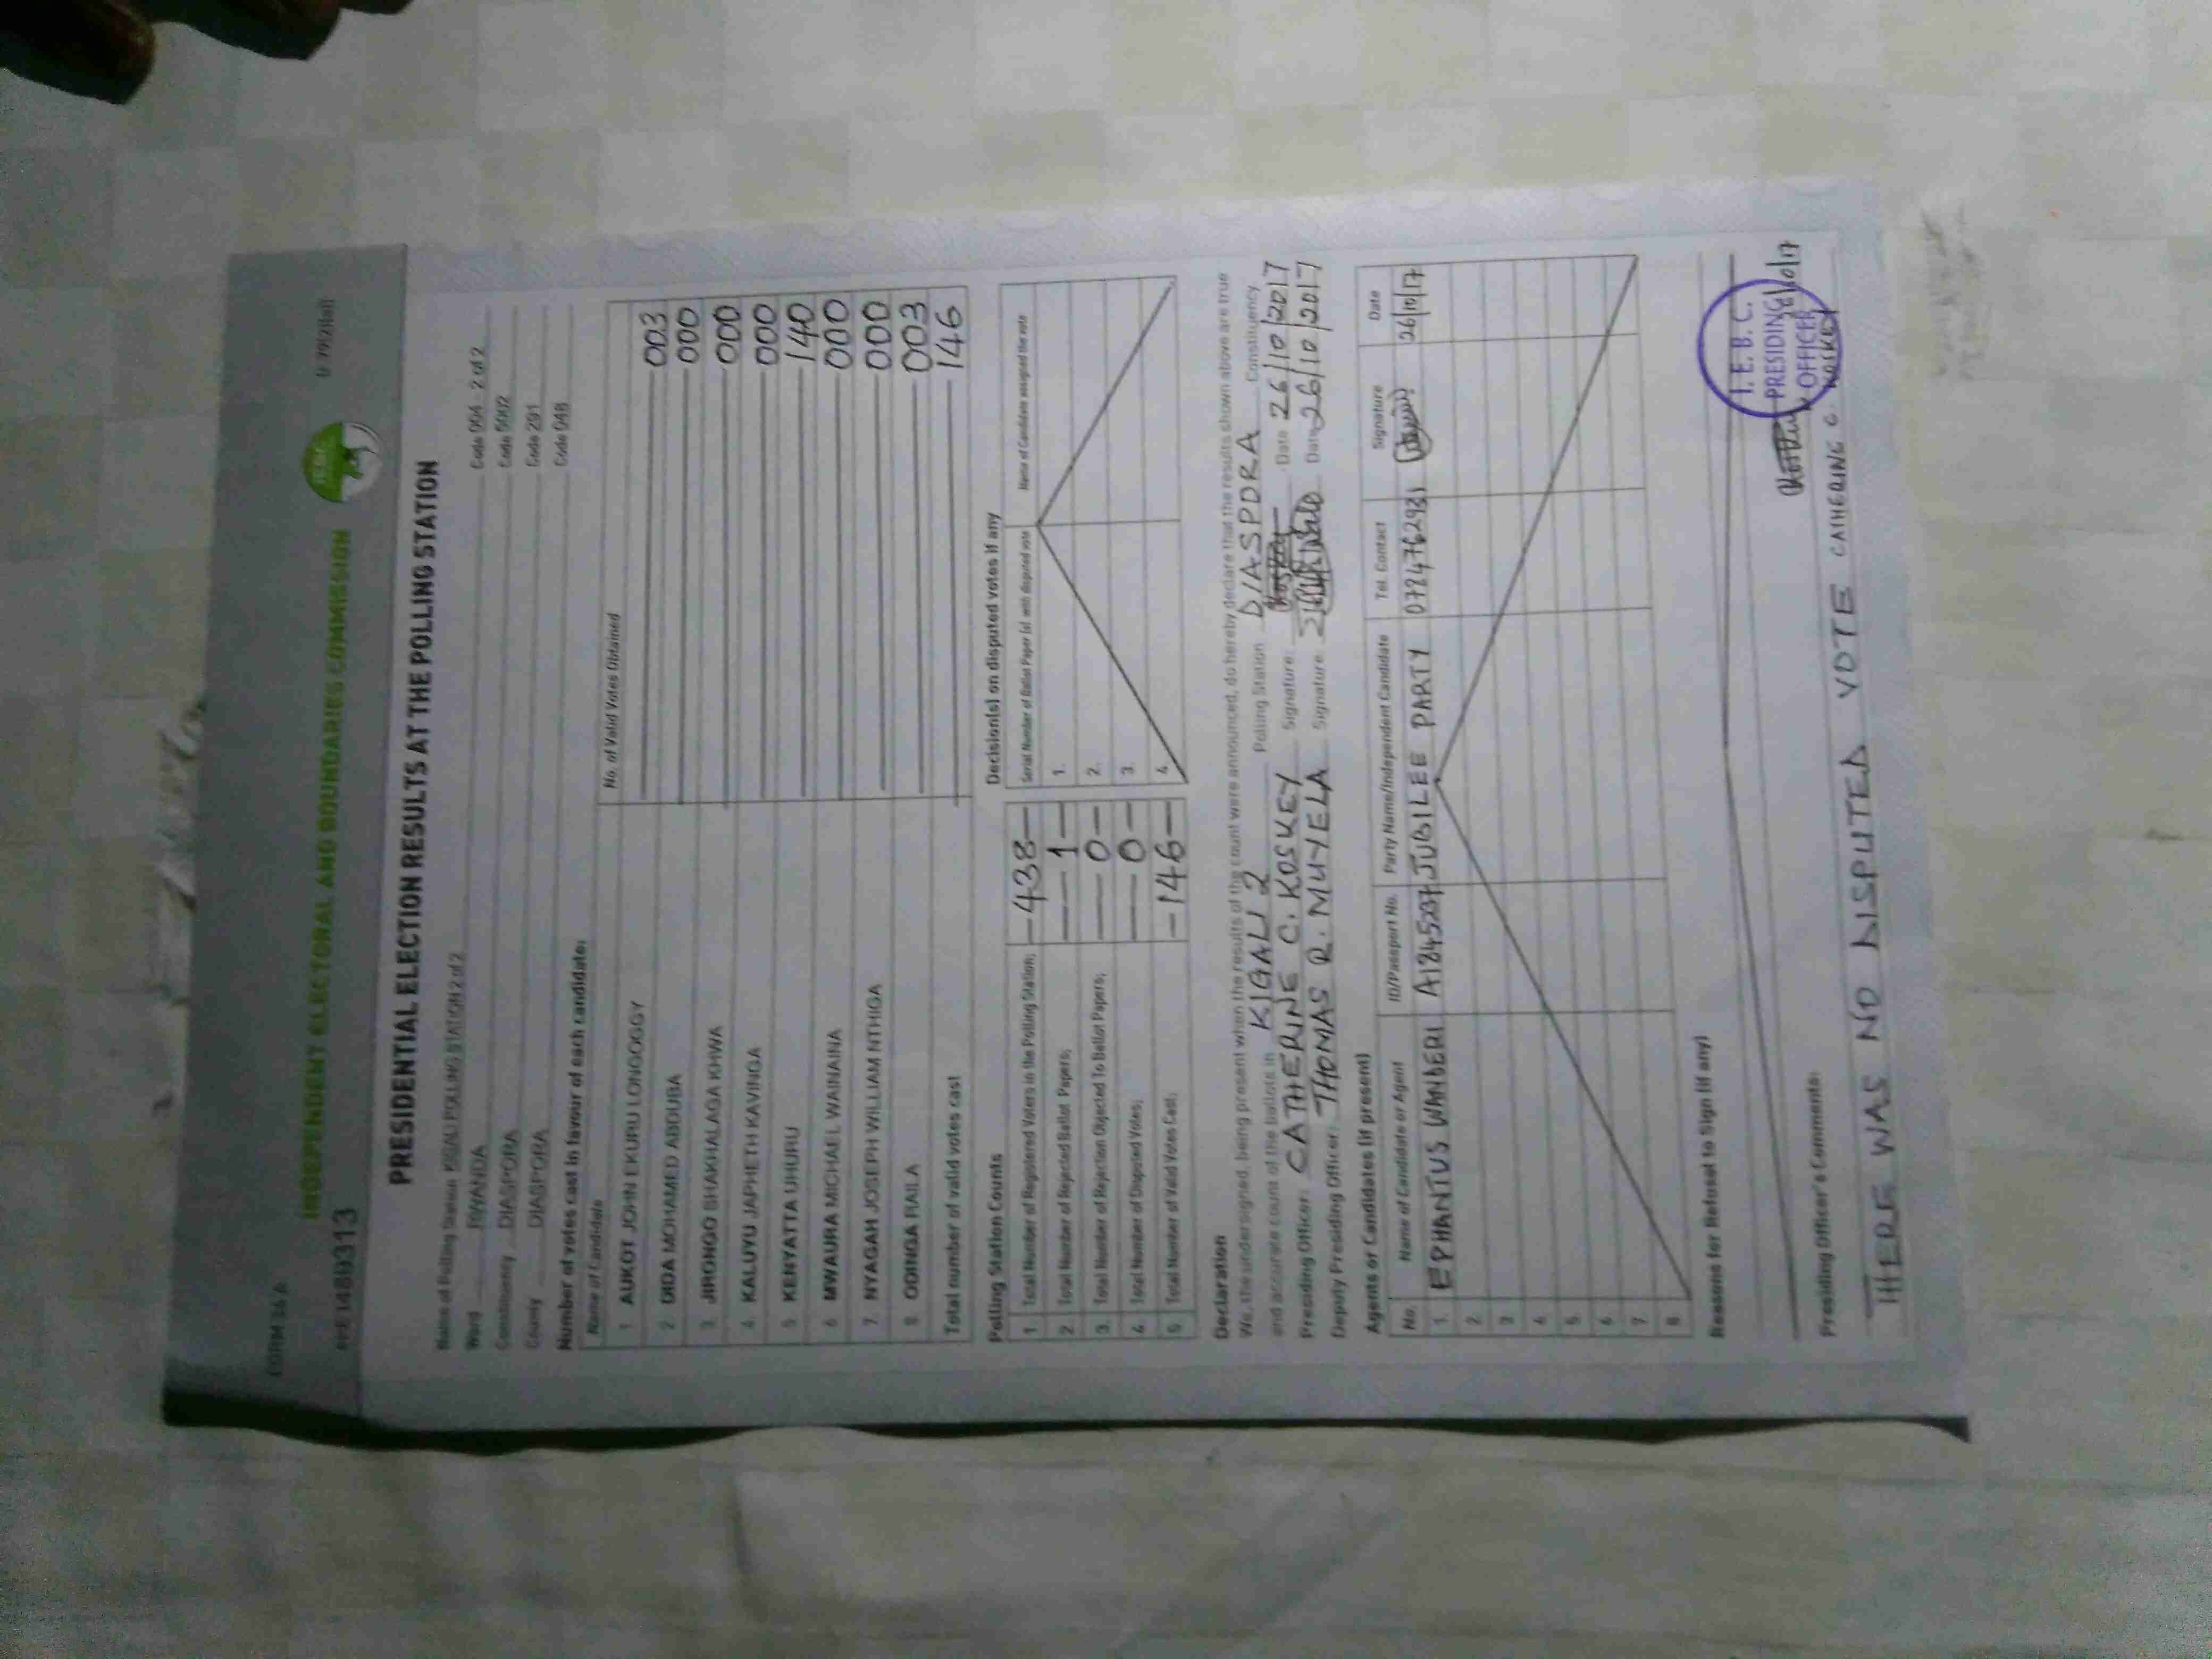 FORM 34 A
INDEPENDENT ELECTORAL AND BOUNDARIES COMMISSION
PRESIDENTIAL ELECTION RESULTS AT THE POLLING STATION
Name of Polling Station KIGALI POLLING STATION 2 of 2 Code 004 - 2 of 2
Ward RWANDA Code 5002
Constituency DIASPORA Code 291
County DIASPORA Code 048
Number of votes cast in favour of each candidate:
Name of Candidate No. of Valid Votes Obtained
1 AUKOT JOHN EKURU LONGOGGY 003
2 DIDA MOHAMED ABDUBA 000
3 JIRONGO SHAKHALAGA KHWA 000
4 KALUYU JAPHETH KAVINGA 000
5 KENYATTA UHURU 140
6 MWAURA MICHAEL WAINAINA 000
7 NYAGAH JOSEPH WILLIAM NTHIGA 000
8 ODINGA RAILA 003
Total number of valid votes cast 146
Polling Station Counts
1 Total Number of Registered Voters in the Polling Station; -438-
2 Total Number of Rejected Ballot Papers; -1-
3 Total Number of Rejection Objected To Ballot Papers; -0-
4 Total Number of Disputed Votes; -0-
5 Total Number of Valid Votes Cast; -146-
Decision(s) on disputed votes if any
Serial Number of Ballot Paper (s) with disputed vote Name of Candidate assigned the vote
1.
2.
3.
4
Declaration
We, the undersigned, being present when the results of the count were announced, do hereby declare that the results shown above are true
and accurate count of the ballots in KIGALI 2 Polling Station DIASPORA Constituency
Presiding Officer: CATHERINE C. KOSKEY Signature: Date 26/10/2017
Deputy Presiding Officer: THOMAS R. MUYELA Signature: Date 26/10/2017
Agents or Candidates (if present)
No. Name of Candidate or Agent ID/Passport No. Party Name/Independent Candidate Tel. Contact Signature Date
1 EPHANTUS WANDERI A1845237 JUBILEE PARTY 0724762931 26/10/17
2
3
4
5
6
7
8
Reasons for Refusal to Sign (if any)
I. E. B. C.
PRESIDING
OFFICER
Presiding Officer's Comments:
CATHERINE C. KOSKEY
THERE WAS NO DISPUTED VOTE